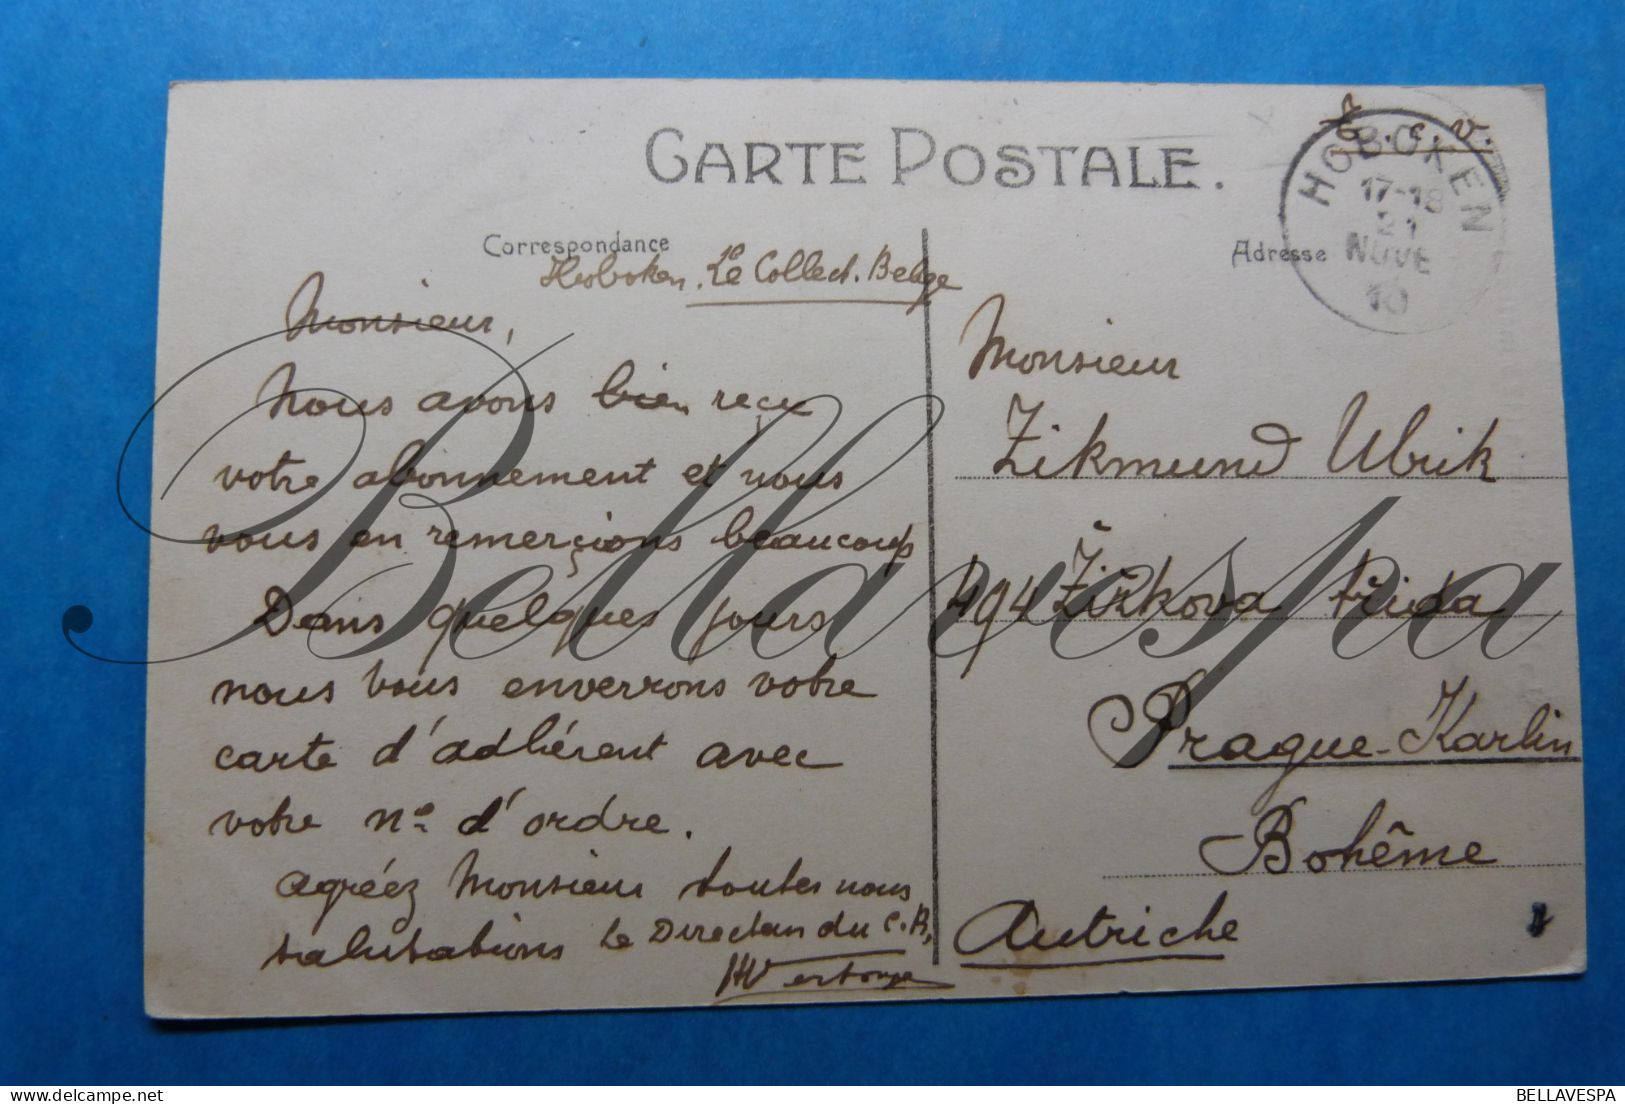 CARTE POSTALE.
T. C. V.
HOBOKEN
17-18
21
NOVE
10
Correspondance
Adresse
Hoboken. Le Collect. Belge
Monsieur,
Nous avons bien reçu
votre abonnement et nous
vous en remerçions beaucoup
Dans quelques jours
nous vous enverrons votre
carte d'adhérent avec
votre no d'ordre.
Agréez Monsieur toutes nous
salutations Le Directeur du C.B.
Monsieur
Zikmund Ubrik
494 Žižkova třída
Prague-Karlin
Bohême
Autriche
Bellavespa
BELLAVESPA